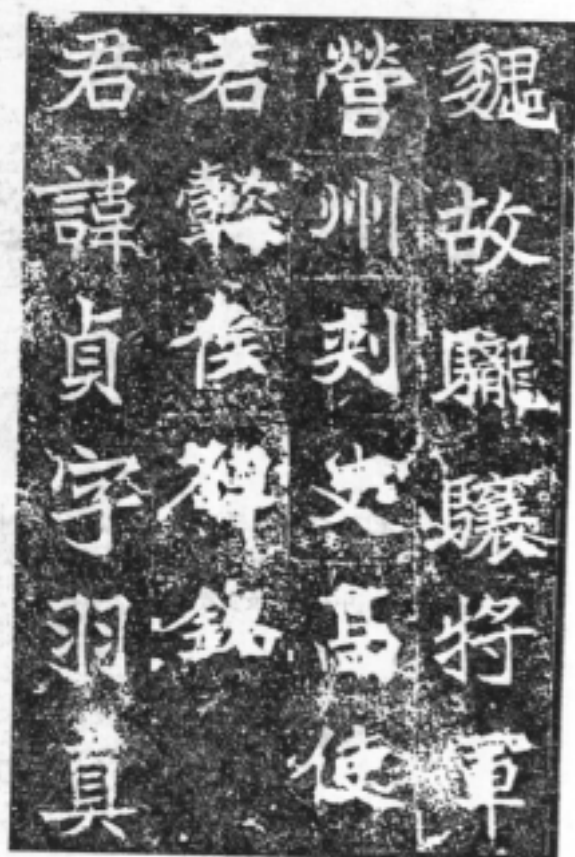 魏故䮾驤將軍
營州刺史高使
君懿侯碑銘
君諱貞字羽真